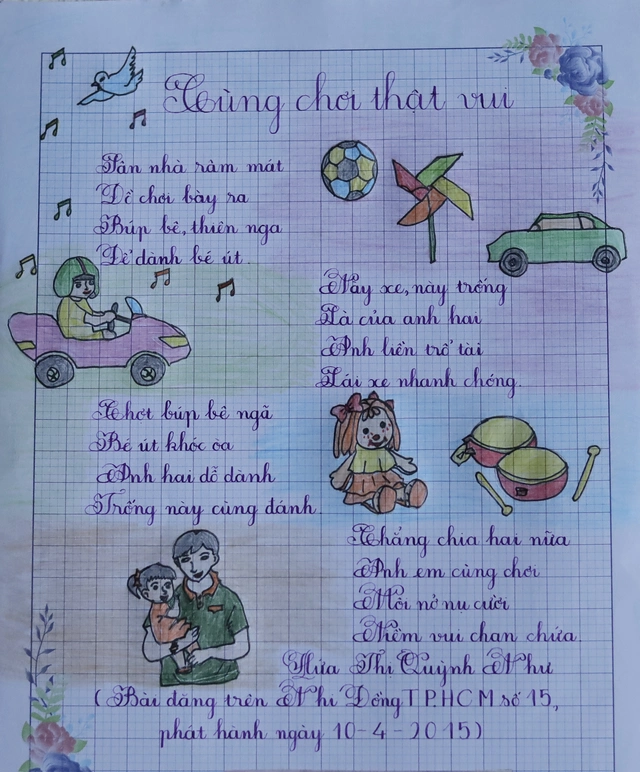 Cùng chơi thật vui
Sân nhà râm mát
Dễ chơi bày ra
Búp bê, thiên nga
Để dành bé út.
Này xe, này trống
Là của anh hai
Anh liền trổ tài
Lái xe nhanh chóng.
Chợt búp bê ngã
Bé út khóc òa
Anh hai dỗ dành
Trống này cùng đánh.
Chẳng chia hai nữa
Anh em cùng chơi
Môi nở nụ cười
Niềm vui chan chứa.
Hứa Thị Quỳnh Như
(Bài đăng trên Nhi Đồng TP.HCM số 15,
phát hành ngày 10-4-2015)